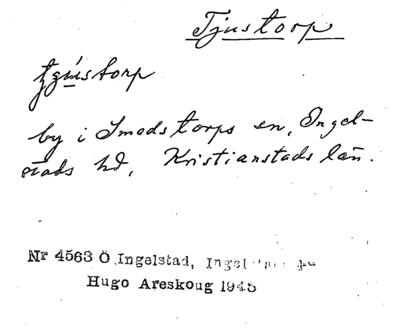 Tjustorp
by i Smedstorps sn, Ingel-
stads hd, Kristianstads län.
Nr 4563 Ö Ingelstad,
Hugo Areskoug 1945